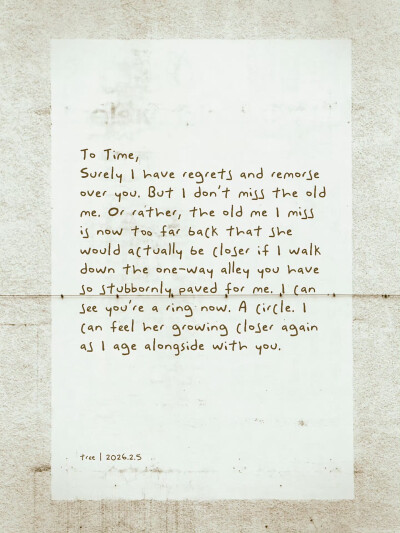 To Time,
Surely I have regrets and remorse
over you. But I don't miss the old
me. Or rather, the old me I miss
is now too far back that she
would actually be closer if I walk
down the one-way alley you have
so stubbornly paved for me. I can
see you're a ring now. A circle. I
can feel her growing closer again
as I age alongside with you.
tree | 2026.2.5